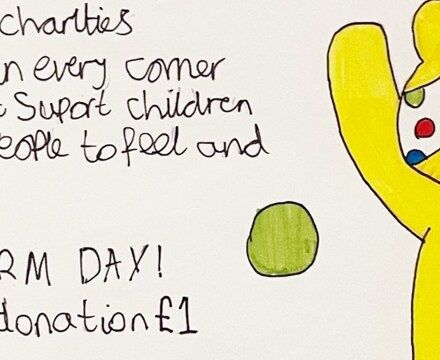 charities
n every corner
Suport children
eople to feel and
RM DAY!
donation £1